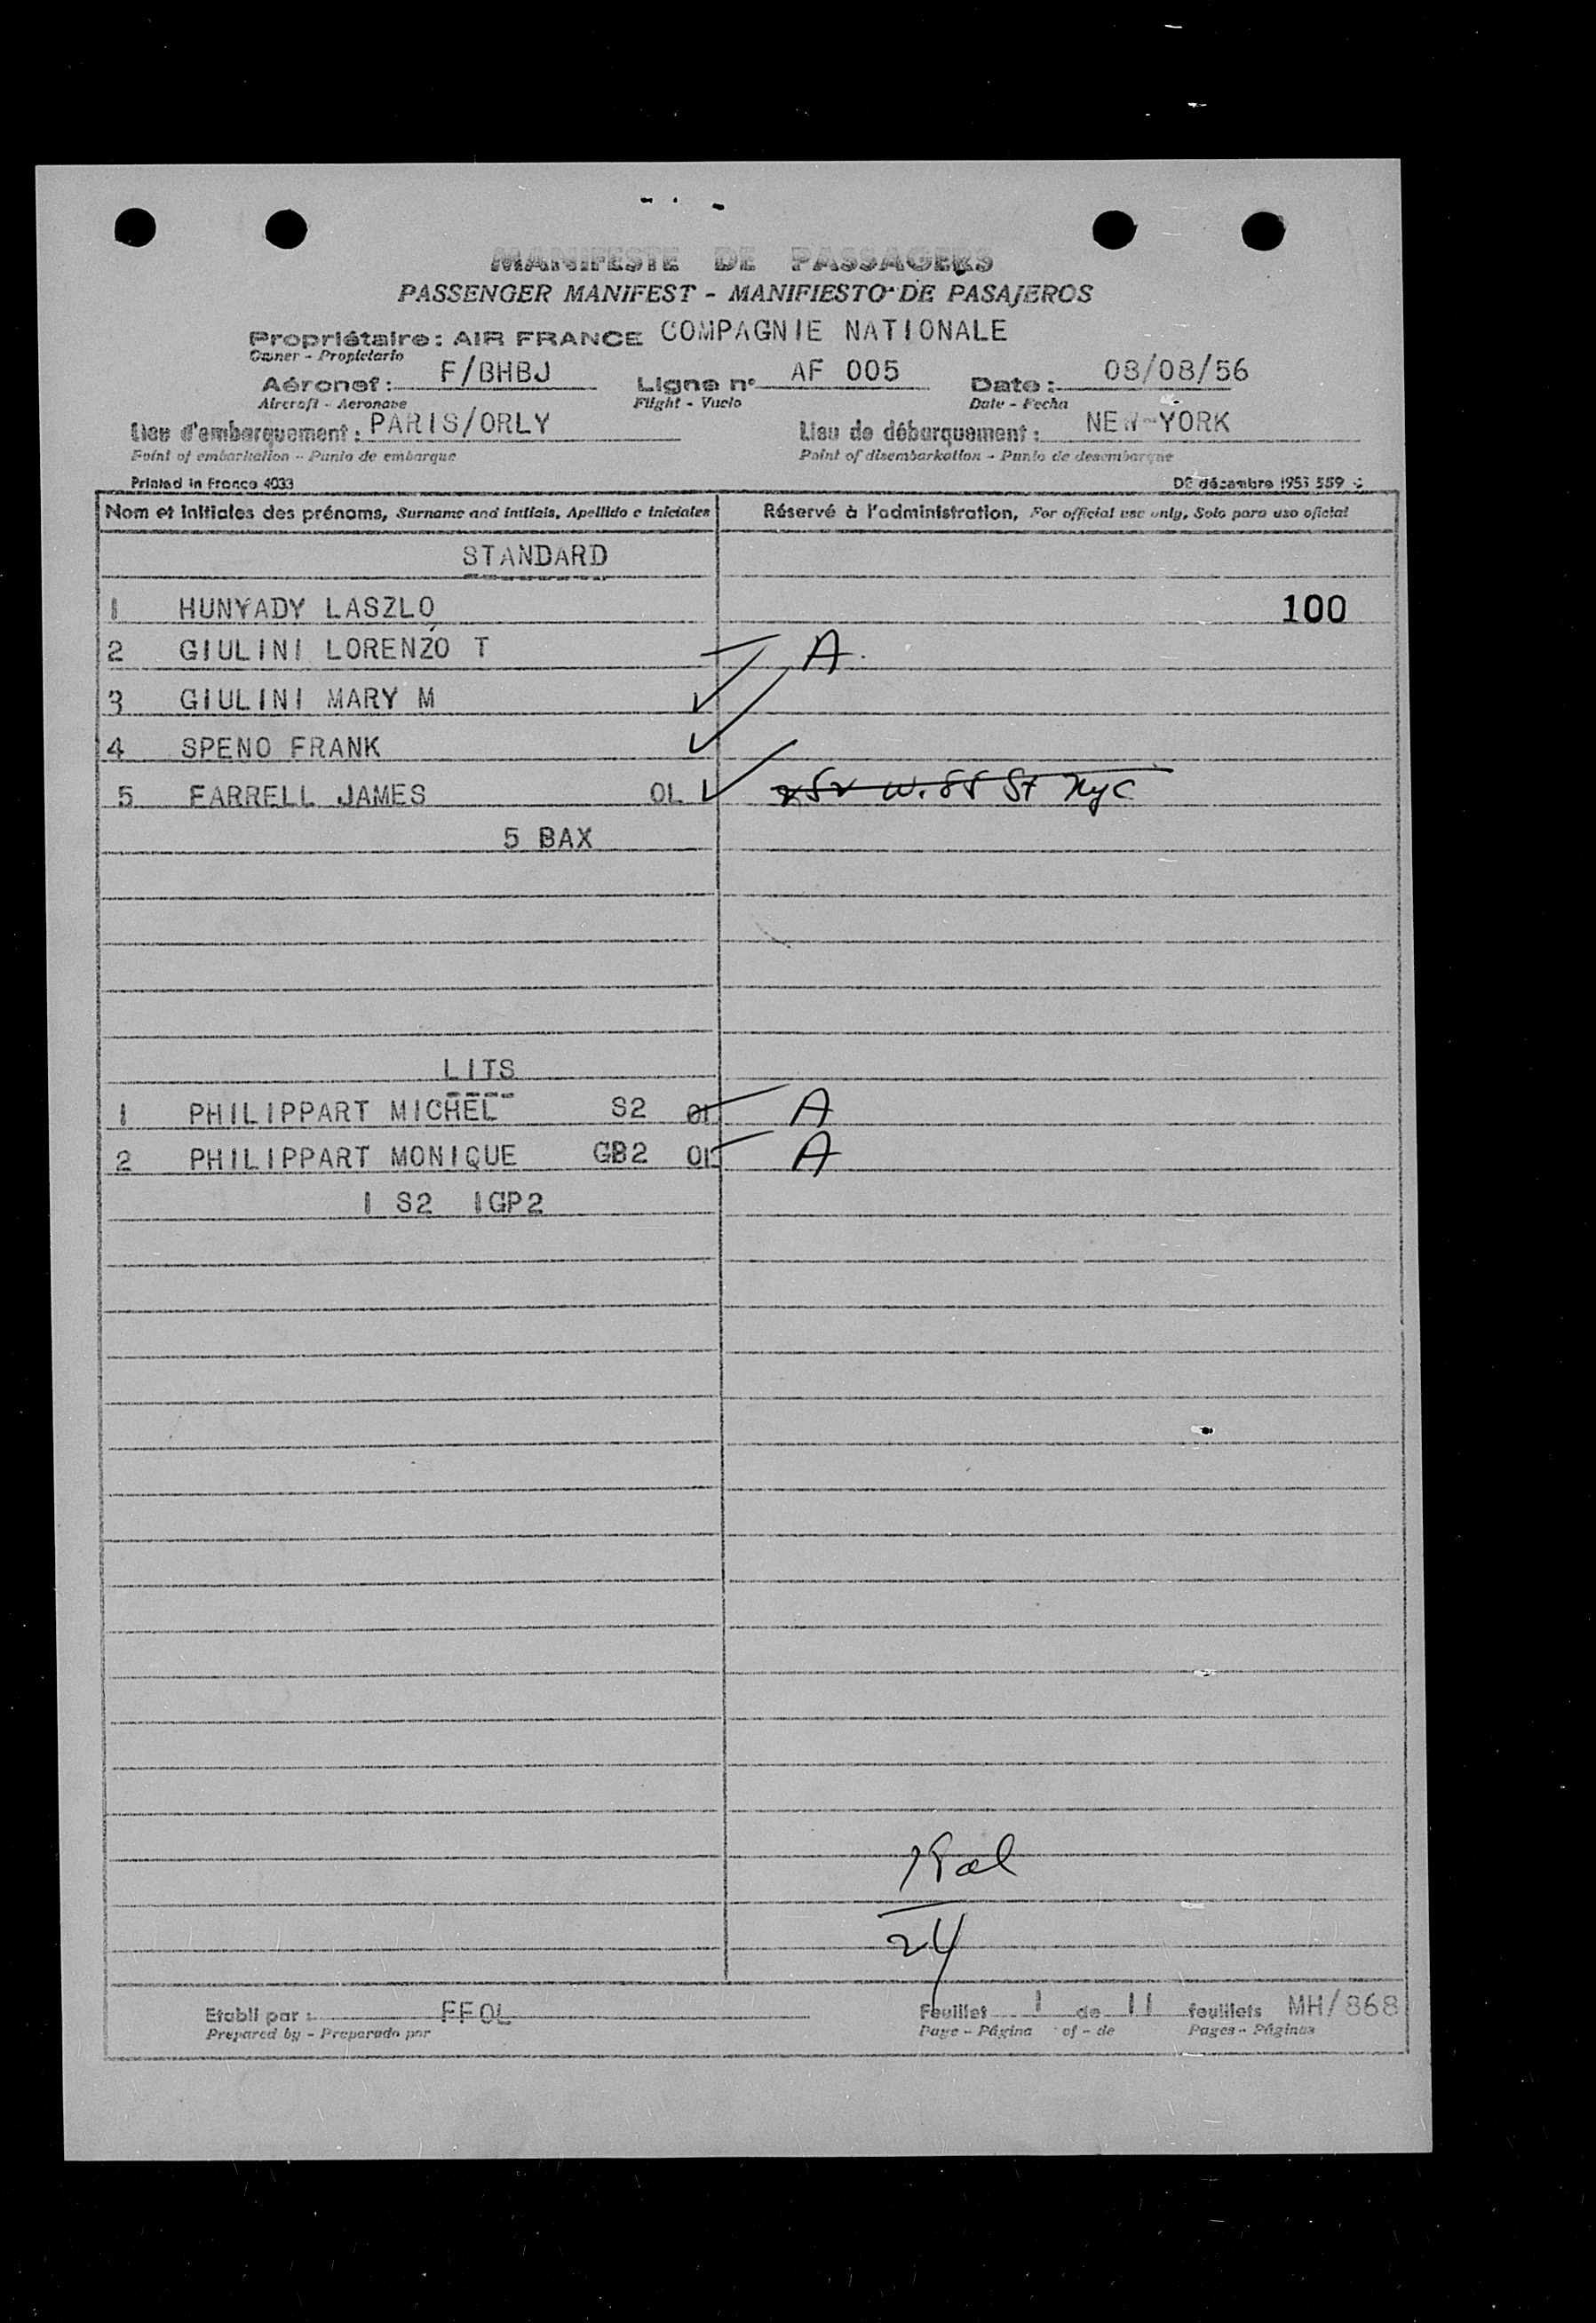 MANIFESTE DE PASSAGERS
PASSENGER MANIFEST - MANIFIESTO DE PASAJEROS
Propriétaire : AIR FRANCE COMPAGNIE NATIONALE
Owner - Propietario
Aéronef : F/BHBJ Ligne n° AF 005 Date : 08/08/56
Aircraft - Aeronave Flight - Vuelo Date - Fecha
Lieu d'embarquement : PARIS/ORLY Lieu de débarquement : NEW-YORK
Point of embarkation - Punto de embarque Point of disembarkation - Punto de desembarque
Printed in France 4033 DC décembre 1955 559
Nom et Initiales des prénoms, Surname and initials, Apellido e iniciales Réservé à l'administration, For official use only, Solo para uso oficial
STANDARD
1 HUNYADY LASZLO 100
2 GIULINI LORENZO T A
3 GIULINI MARY M
4 SPENO FRANK
5 FARRELL JAMES OL W. 55 St Nyc
5 BAX
LITS
1 PHILIPPART MICHEL S2 OL A
2 PHILIPPART MONIQUE GB2 OL A
1 S2 1GP2
24
Etabli par : FFOL Feuillet 1 de 11 feuillets MH/868
Prepared by - Preparado por Page - Página of - de Pages - Páginas